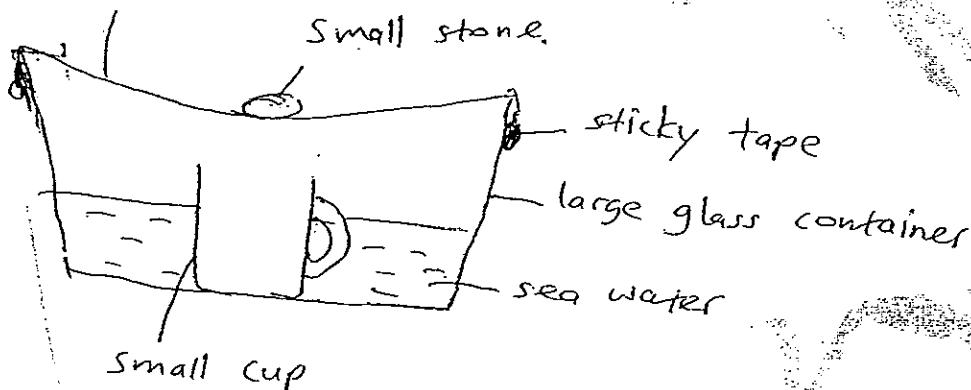 Small stone.
sticky tape
large glass container
sea water
small cup